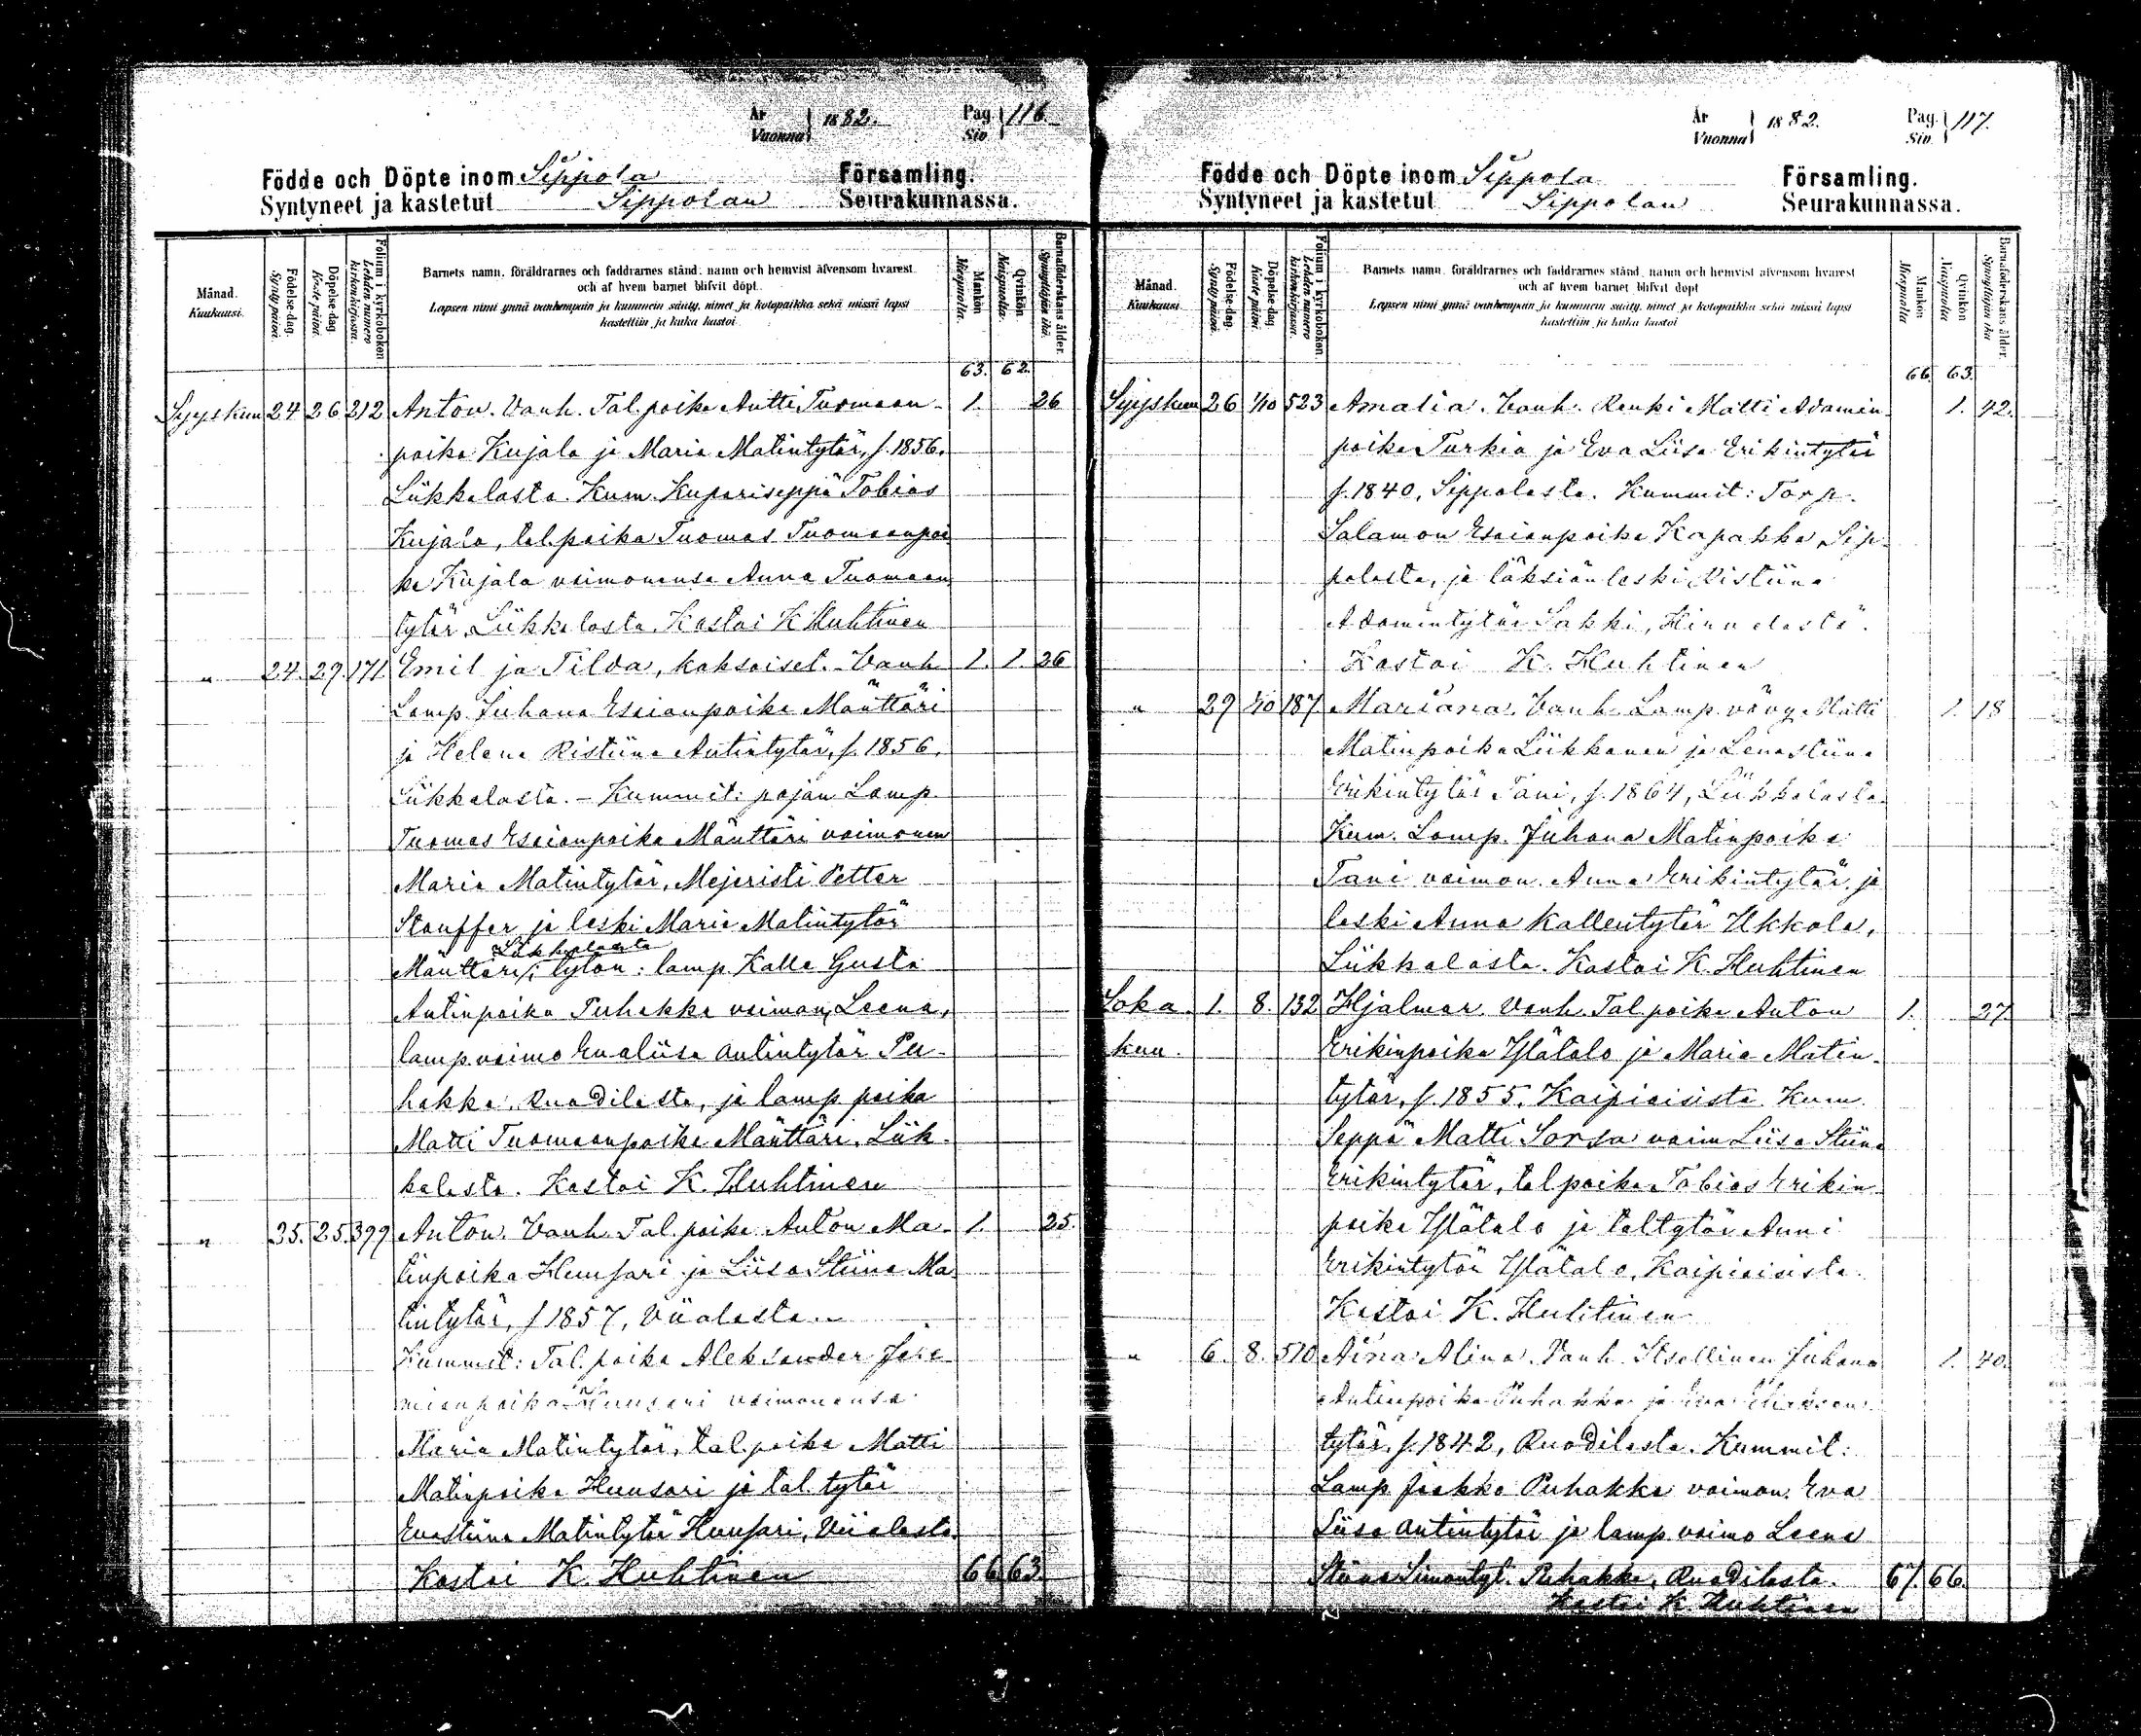 År
Vuonna } 1882.
Pag.
Siv. } 116.
Födde och Döpte inom Sippola Församling.
Syntyneet ja kastetut Sippolan Seurakunnassa.
Månad. Kuukausi.
Födelse-dag. Syntypäivä.
Döpelse-dag. Kastepäivä.
Folium i kyrkoboken Lehden numero kirkonkirjassa.
Barnets namn, föräldrarnes och faddrarnes stånd, namn och hemvist äfvensom hvarest
och af hvem barnet blifvit döpt.
Lapsen nimi ynnä vanhempain ja kummein sääty, nimet ja kotopaikka sekä missä lapsi
kastettiin ja kuka kastoi
Mankön Miespuolia.
Qvinkön Naispuolia.
Barnaföderskans ålder. Synnyttäjän ikä.
63. 62.
Syyskuu 24 26 212 Anton. Vanh. Tal. poika Antti Tuomaan- 1. 26
poika Kujala ja Maria Matintytär, f. 1856.
Liikkalasta. Kum. Kupariseppä Tobias
Kujala, tal. poika Tuomas Tuomaanpoi
ka Kujala vaimonensa Anna Tuomaan
tytär Liikkalasta. Kastoi K Huhtinen
" 24. 29. 171 Emil ja Tilda, kaksoiset. Vanh 1. 1. 26
Lamp. Juhana Esaianpoika Mänttäri
ja Helena Ristiina Antintytär, f. 1856.
Liikkalasta. - Kummit: pojan Lamp.
Tuomas Esaianpoika Mänttäri vaimonen
Maria Matintytär, Mejeristi Petter
Stauffer ja leski Maria Matintytär
Liikkalasta
Mänttäri; tytön: lamp. Kalle Gusta
Antinpoika Puhakka vaimon, Leena,
lamp vaimo Evaliisa Antintytär Pu-
hakka, Ruadilasta, ja lamp poika
Matti Tuomaanpoika Mänttäri, Liik-
kalasta. Kastoi K. Huhtinen
" 25. 25. 399 Anton. Vanh. Tal. poika Anton Ma- 1. 25.
tinpoika Huusari ja Liisa Stiina Ma
tintytär, f 1857, Viialasta.
Kummit: Tal. poika Aleksander Jere
mianpoika Huusari vaimonensa
Maria Matintytär, tal. poika Matti
Matinpoika Huusari ja tal. tytär
Evastiina Matintytär Huusari, Viialasta.
Kastoi K. Huhtinen 66 63.
År
Vuonna } 1882.
Pag.
Siv. } 117.
Födde och Döpte inom Sippola Församling.
Syntyneet ja kastetut Sippolan Seurakunnassa.
Månad. Kuukausi.
Födelse-dag. Syntypäivä.
Döpelse-dag. Kastepäivä.
Folium i kyrkoboken Lehden numero kirkonkirjassa.
Barnets namn, föräldrarnes och faddrarnes stånd, namn och hemvist äfvensom hvarest
och af hvem barnet blifvit döpt
Lapsen nimi ynnä vanhempain ja kummein sääty, nimet ja kotopaikka sekä missä lapsi
kastettiin ja kuka kastoi
Mankön Miespuolia
Qvinkön Naispuolia
Barnaföderskans ålder. Synnyttäjän ikä
66. 63.
Syyskuu 26 1/10 523 Amalia. Vanh. Renki Matti Adamin 1. 42.
poika Turkia ja Eva Liisa Erikintytär
f. 1840, Sippolasta. Kummit: Torp.
Salamon Esaianpoika Kapakka, Sip-
polasta, ja läksiän leski Ristiina
Adamintytär Sakki, Hirvelästä.
Kastoi K. Huhtinen
" 29 1/10 187 Mariana. Vanh. Lamp. vävy Matti 1. 18
Matinpoika Liikkanen ja Lenastiina
Erikintytär Tani, f. 1864, Liikkalasta.
Kum. Lamp. Juhana Matinpoika
Tani vaimon. Anna Erikintytär ja
leski Anna Kallentytär Ukkola,
Liikkalasta. Kastoi K. Huhtinen
Loka- 1. 8. 132 Hjalmar. Vanh. Tal poika Anton 1. 27.
kuu. Erikinpoika Ylätalo ja Maria Matin-
tytär, f. 1855, Kaipiaisista. Kum.
Seppä Matti Sorsa vaim Liisa Stiina
Erikintytär, tal poika Tobias Erikin
poika Ylätalo ja taltytär Anni
Erikintytär Ylätalo, Kaipiaisista.
Kastoi K. Huhtinen
" 6. 8. 570 Aina Alina. Vanh. Itsellinen Juhana 1. 40.
Antinpoika Puhakka ja Eva
tytär, f. 1842, Ruadilasta. Kummit:
Lamp Jaakko Puhakka vaimon. Eva
Liisa Antintytär ja lamp. vaimo Leena
Stiina Simontyt. Puhakka, Ruadilasta. 67. 66.
Kastoi K. Huhtinen